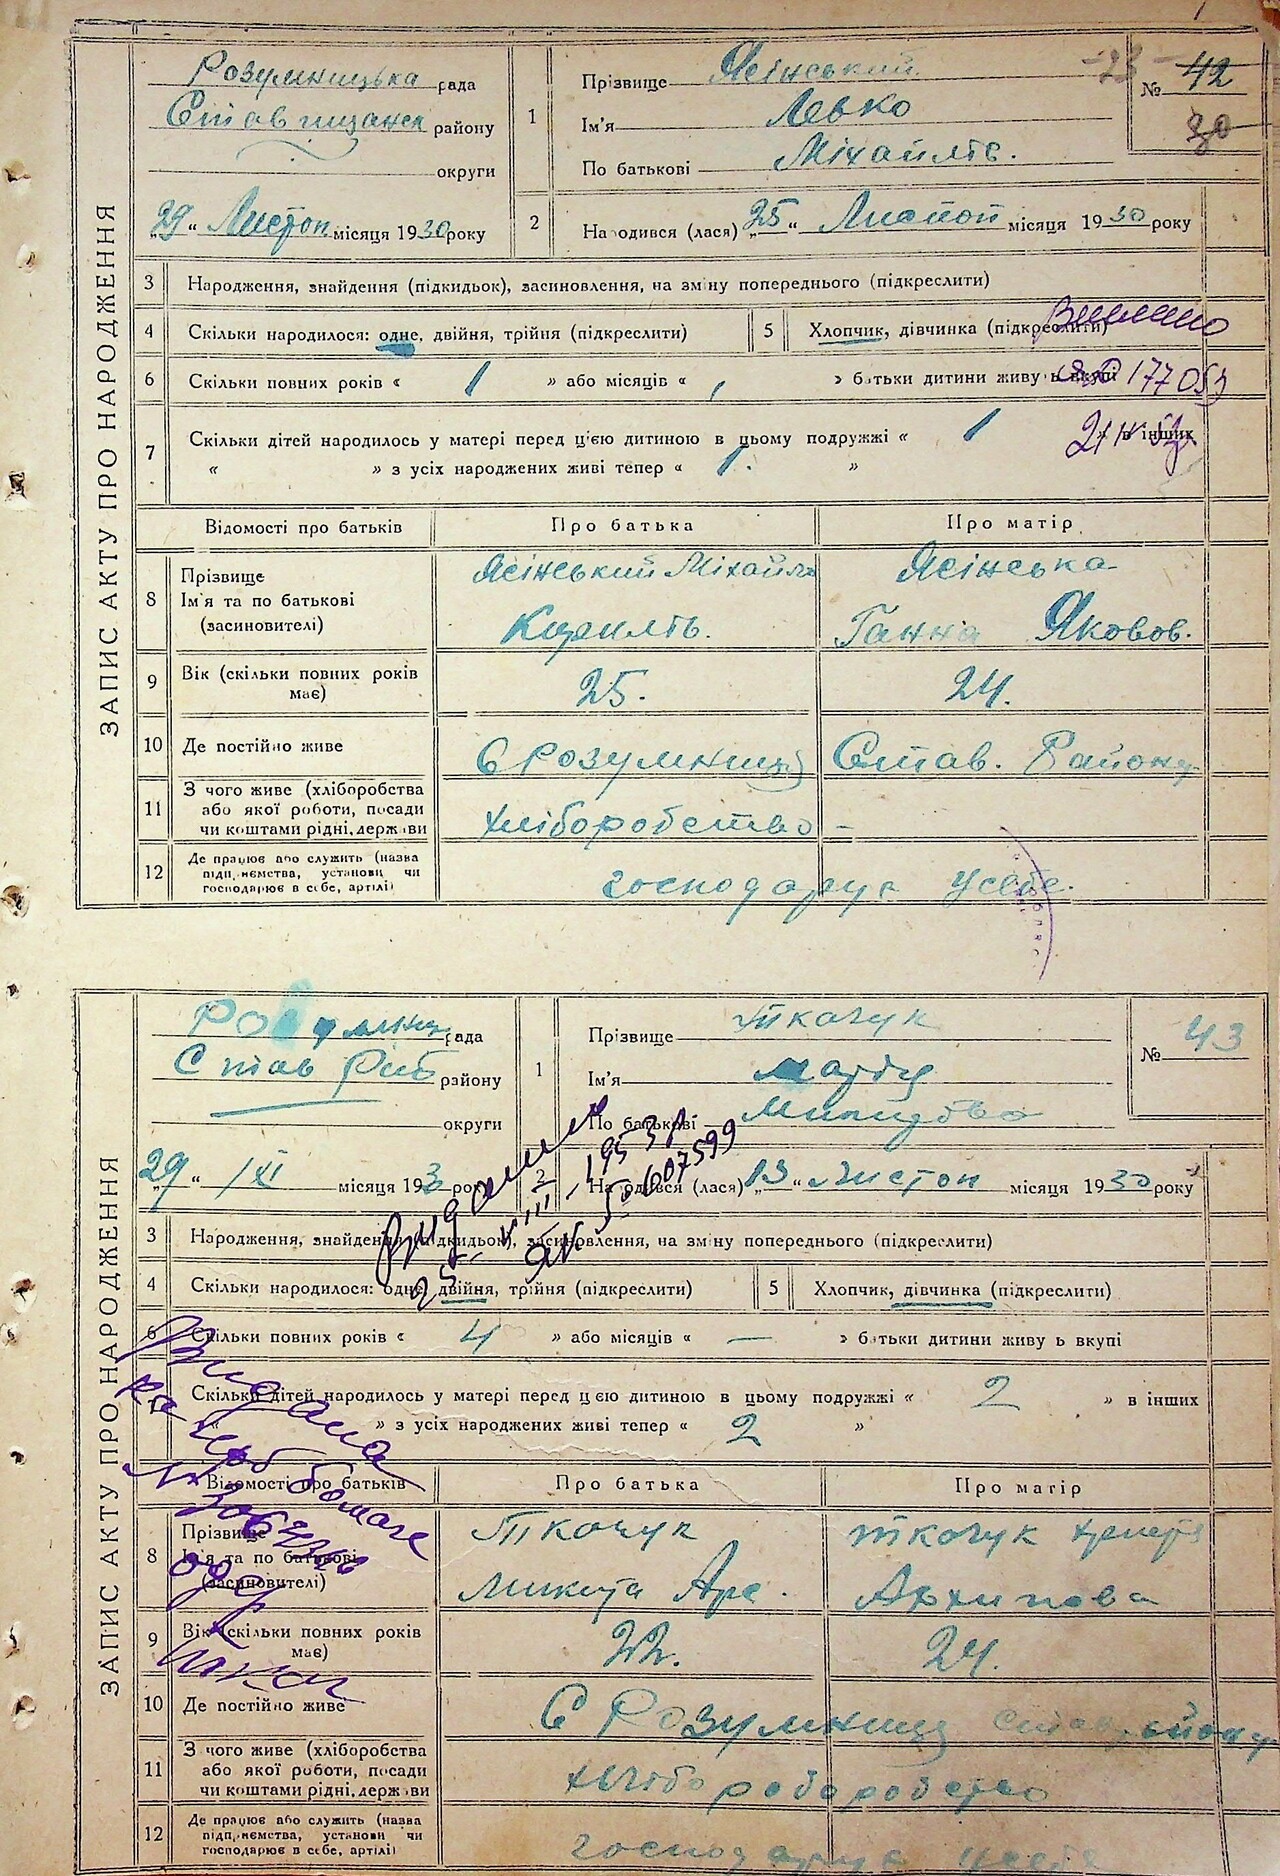 ЗАПИС АКТУ ПРО НАРОДЖЕННЯ
Розумницька рада
Ставищанск району
округи
"29" Листоп місяця 1930 року
1
Прізвище Ясінський
Ім'я Левко
По батькові Міхайлів.
-23- № 42
30
2 Народився (лася) "25" Листоп місяця 1930 року
3 Народження, знайдення (підкидьок), засиновлення, на зміну попереднього (підкреслити)
4 Скільки народилося: одне, двійня, трійня (підкреслити)
5 Хлопчик, дівчинка (підкреслити)
6 Скільки повних років « 1 » або місяців « » батьки дитини живуть вкупі
177053
7 Скільки дітей народилось у матері перед ц'єю дитиною в цьому подружжі « 1 » в інших
« » з усіх народжених живі тепер « 1. »
Відомості про батьків Про батька Про матір
8 Прізвище
Ім'я та по батькові
(засиновителі)
Ясінський Міхайло
Ясінська
Ганна Яковов.
9 Вік (скільки повних років має) 25. 24.
10 Де постійно живе С Розумниці Став. Району
11 З чого живе (хліборобства
або якої роботи, посади
чи коштами рідні, держави
хліборобство -
12 Де працює або служить (назва
підприємства, установи чи
господарює в себе, артілі)
господарує усебе.
ЗАПИС АКТУ ПРО НАРОДЖЕННЯ
рада
Став району
округи
"29" /XI місяця 193 року
1
Прізвище Ткачук
Ім'я
По батькові
№ 43
2 Народився (лася) "13" Листоп місяця 1930 року
3 Народження, знайдення (підкидьок), засиновлення, на зміну попереднього (підкреслити)
4 Скільки народилося: одне, двійня, трійня (підкреслити)
5 Хлопчик, дівчинка (підкреслити)
6 Скільки повних років « 4 » або місяців « — » батьки дитини живуть вкупі
7 Скільки дітей народилось у матері перед цією дитиною в цьому подружжі « 2 » в інших
« » з усіх народжених живі тепер « 2 »
Відомості про батьків Про батька Про матір
8 Прізвище
Ім'я та по батькові
(засиновителі)
Ткачук
Микита Арс.
Ткачук
Архипова
9 Вік (скільки повних років має) 22. 24.
10 Де постійно живе С Розумниці
11 З чого живе (хліборобства
або якої роботи, посади
чи коштами рідні, держави
12 Де працює або служить (назва
підприємства, установи чи
господарює в себе, артілі)
господарує